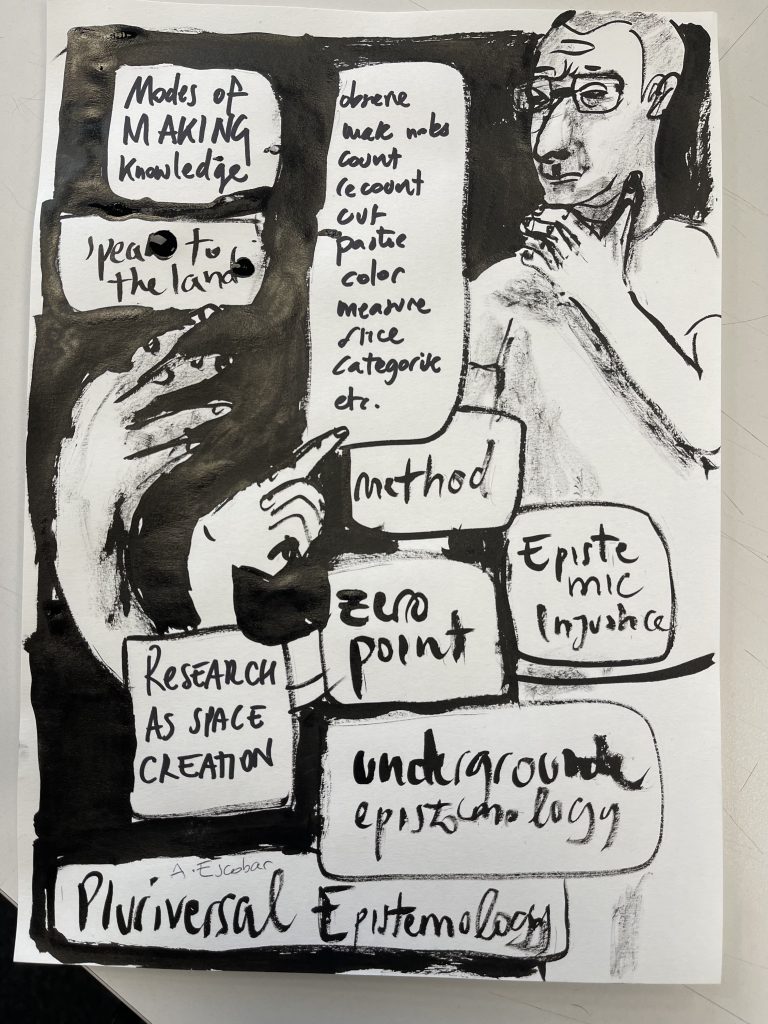 Modes of
MAKING
Knowledge
speak to
the land
observe
make notes
count
recount
cut
paste
color
measure
slice
categorize
etc.
method
Episte
mic
Injustice
zero
point
RESEARCH
AS SPACE
CREATION
underground
epistemology
A. Escobar
Pluriversal Epistemology